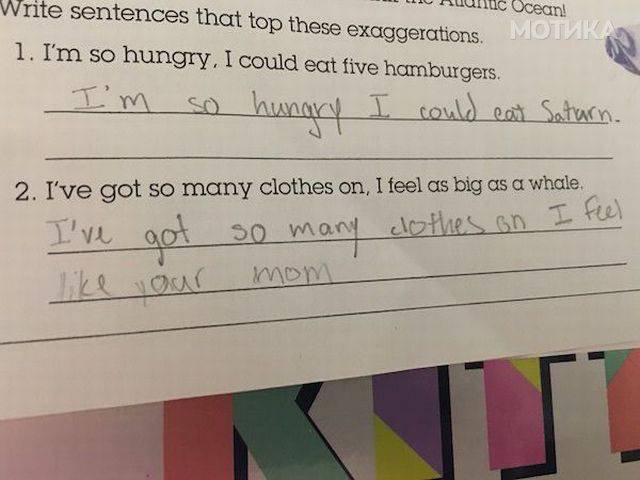 Atlantic Ocean!
Write sentences that top these exaggerations.
МОТИКА
1. I'm so hungry, I could eat five hamburgers.
I'm so hungry I could eat Saturn.
2. I've got so many clothes on, I feel as big as a whale.
I've got so many clothes on I feel
like your mom